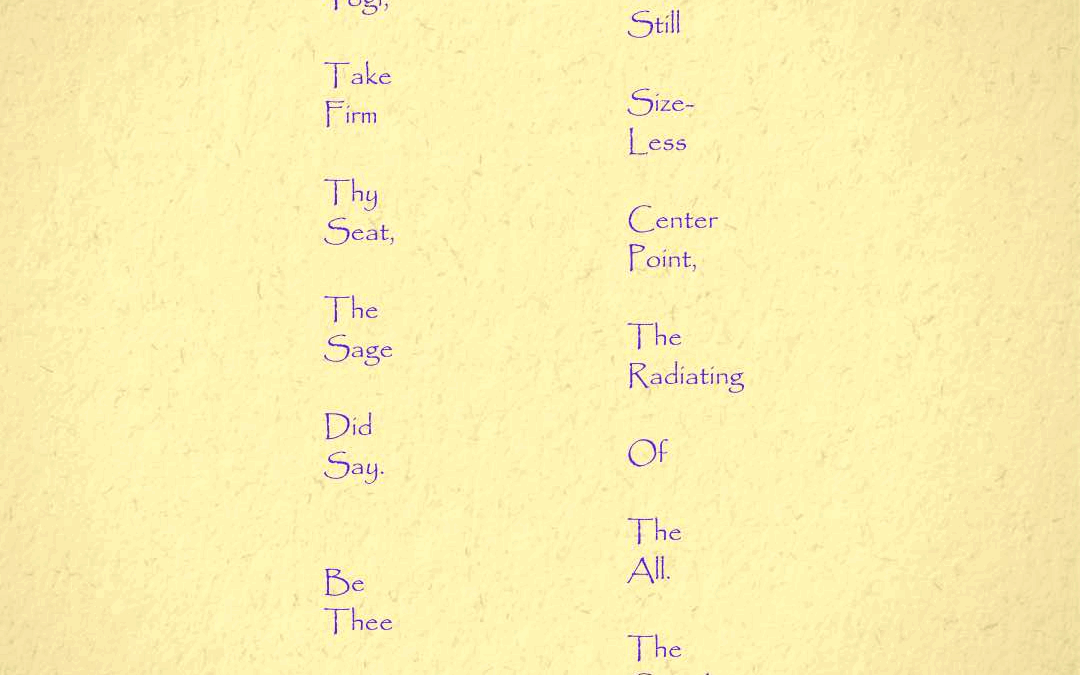 Yogi,
Take
Firm
Thy
Seat,
The
Sage
Did
Say.
Be
Thee
Still
Size-
Less
Center
Point,
The
Radiating
Of
The
All.
The